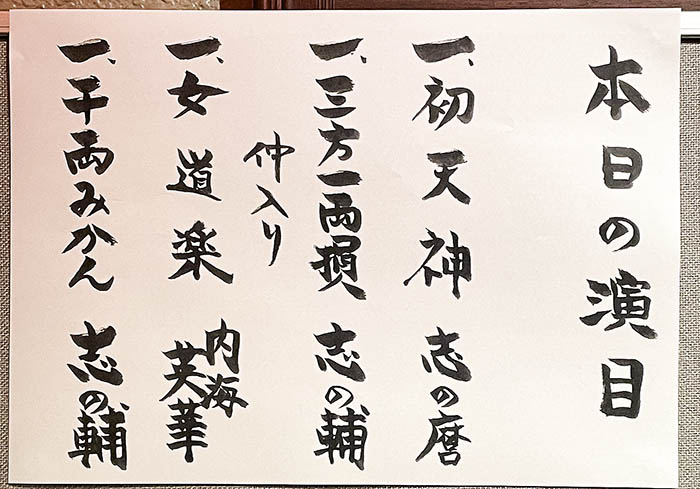 本日の演目
一、初天神 志の麿
一、三方一両損 志の輔
仲入り
一、女道楽 内海英華
一、千両みかん 志の輔